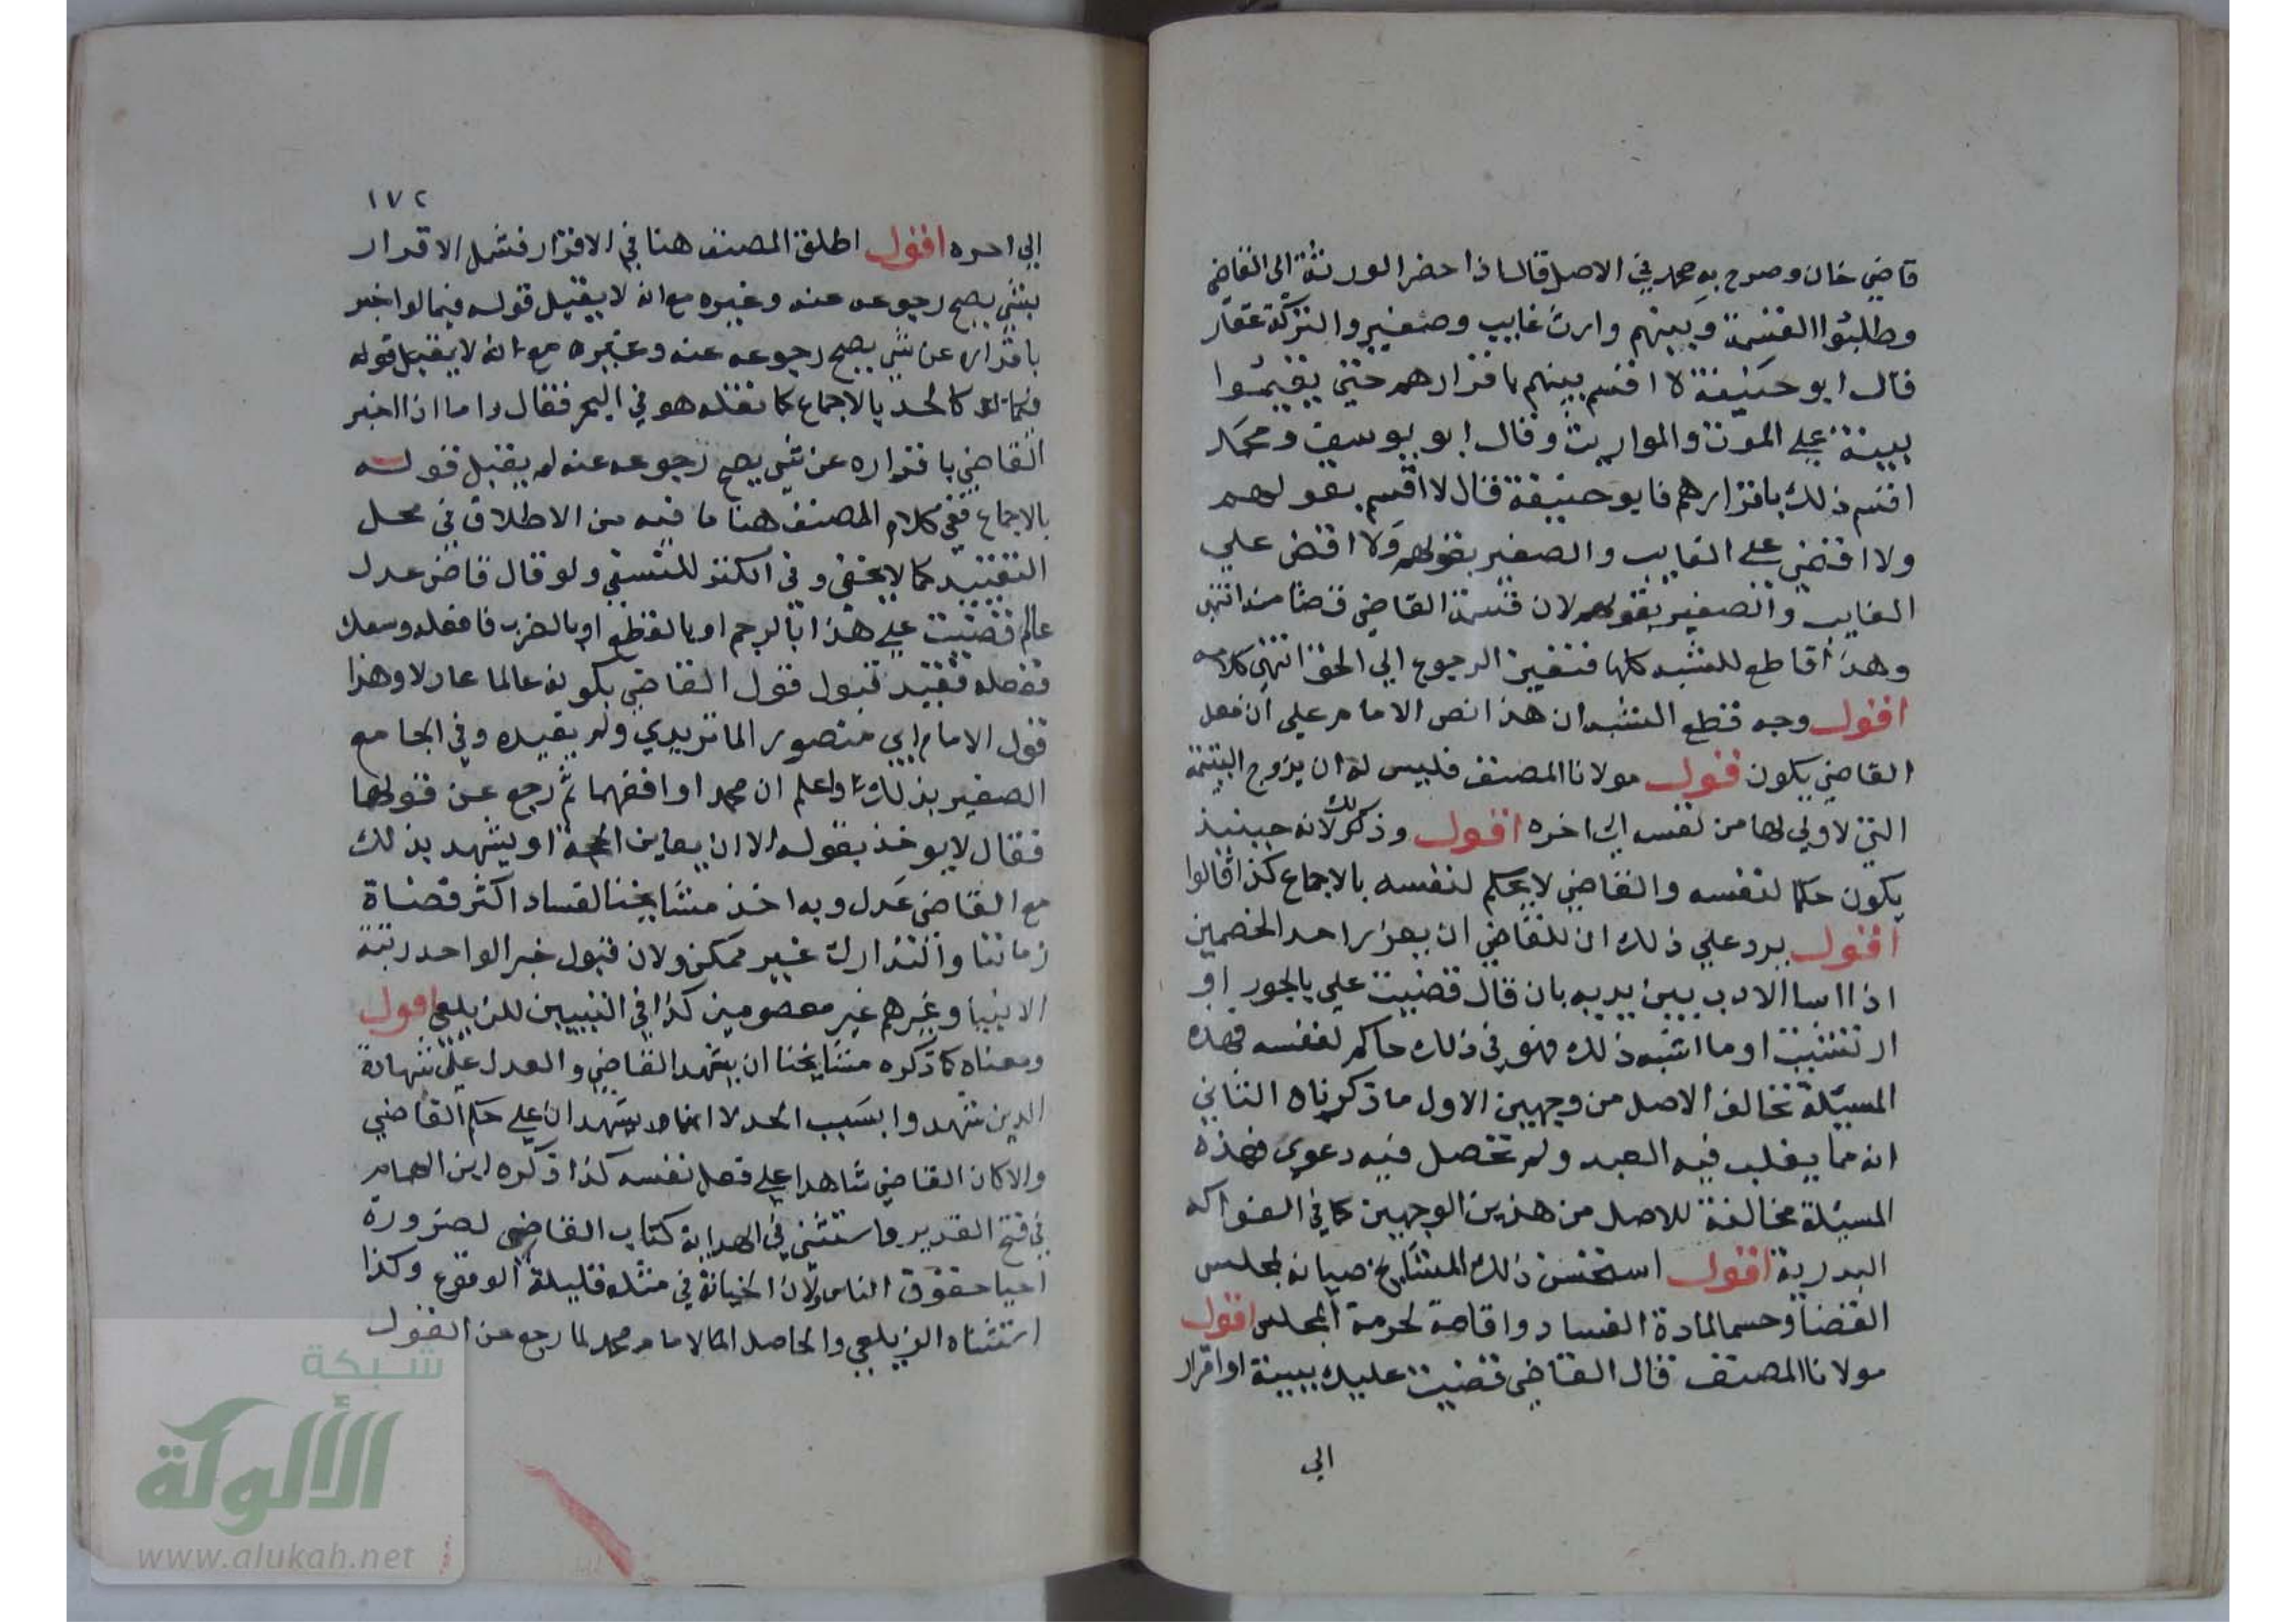 قاضي خان وصرح به محمد في الاصل قال اذا حضر الورثة الى القاضي
وطلبوا القسمة وبينهم وارث غايب وصغير والتركة عقار
قال ابو حنيفة لا اقسم بينهم باقرارهم حتى يقيموا
بينة على الموت والمواريث وقال ابو يوسف ومحمد
اقسم ذلك باقرارهم فابو حنيفة قال لا اقسم بقولهم
ولا اقضي على الغايب والصغير بقولهم ولا اقضي علي
الغايب والصغير بقولهم لان قسمة القاضي قضا منه انتهى
وهذا قاطع للشبه كلها فتعين الرجوع الي الحق انتهى كلامه
اقول وجه قطع الشبه ان هذا نص الامام علي ان فعل
القاضي يكون قول مولانا المصنف فليس له ان يزوج اليتيمة
التي لا ولي لها من نفسه الى اخره اقول وذلك لانه حينيذ
يكون حكما لنفسه والقاضي لا يحكم لنفسه بالاجماع كذا قالوا
اقول يرد علي ذلك ان للقاضي ان يعزر احد الخصمين
اذا اسا الادب بين يديه بان قال قضيت علي بالجور او
ارتشيت او ما اشبه ذلك فهو في ذلك حاكم لنفسه فهذه
المسيلة تخالف الاصل من وجهين الاول ما ذكرناه الثاني
انه مما يغلب فيه العبد ولم تحصل فيه دعوى فهذه
المسيلة مخالفة للاصل من هذين الوجهين كما في الفواكه
البدرية اقول استحسن ذلك المشايخ صيانة لمجلس
القضا وحسما لمادة الفساد واقامة لحرمة المجلس اقول
مولانا المصنف قال القاضي قضيت عليك ببينة او اقرار
الي
١٧٢
الي اخره اقول اطلق المصنف هنا في الاقرار فشمل الاقرار
بشي يصح رجوعه عنه وغيره مع انه لا يقبل قوله فيما لو اخبر
باقراره عن شي يصح رجوعه عنه وغيره مع انه لا يقبل قوله
كالحد بالاجماع كما نقله هو في البحر فقال واما اذا اخبر
القاضي باقراره عن شي يصح رجوعه عنه لم يقبل قوله
بالاجماع ففي كلام المصنف هنا ما فيه من الاطلاق في محل
التقييد كما لا يخفى وفي الكنز للنسفي ولو قال قاض عدل
عالم قضيت علي هذا بالرجم او بالقطع او بالضرب فافعله وسعك
ففعله فقيد قبول قول القاضي بكونه عالما عادلا وهذا
قول الامام ابي منصور الماتريدي ولم يقيده وفي الجامع
الصغير بذلك واعلم ان محمدا وافقهما ثم رجع عن قولهما
فقال لا يوخذ بقوله الا ان يعاين الحجة او يشهد بذلك
مع القاضي عدل وبه اخذ مشايخنا لفساد اكثر قضاة
زماننا والتدارك غير ممكن ولان قبول خبر الواحد رتبة
الانبيا وغيرهم غير معصومين كذا في التبيين للزيلعي اقول
ومعناه كما ذكره مشايخنا ان يشهد القاضي والعدل على شهادة
الذين شهدوا بسبب الحد لا انهما يشهدان علي حكم القاضي
والا كان القاضي شاهدا على فعل نفسه كذا ذكره ابن الهمام
في فتح القدير واستثنى في الهداية كتاب القاضي لضرورة
احيا حقوق الناس ولان الخيانة في مثله قليلة الوقوع وكذا
استثناه الزيلعي والحاصل الامام محمد لما رجع عن القول
شبكة
الألوكة
www.alukah.net